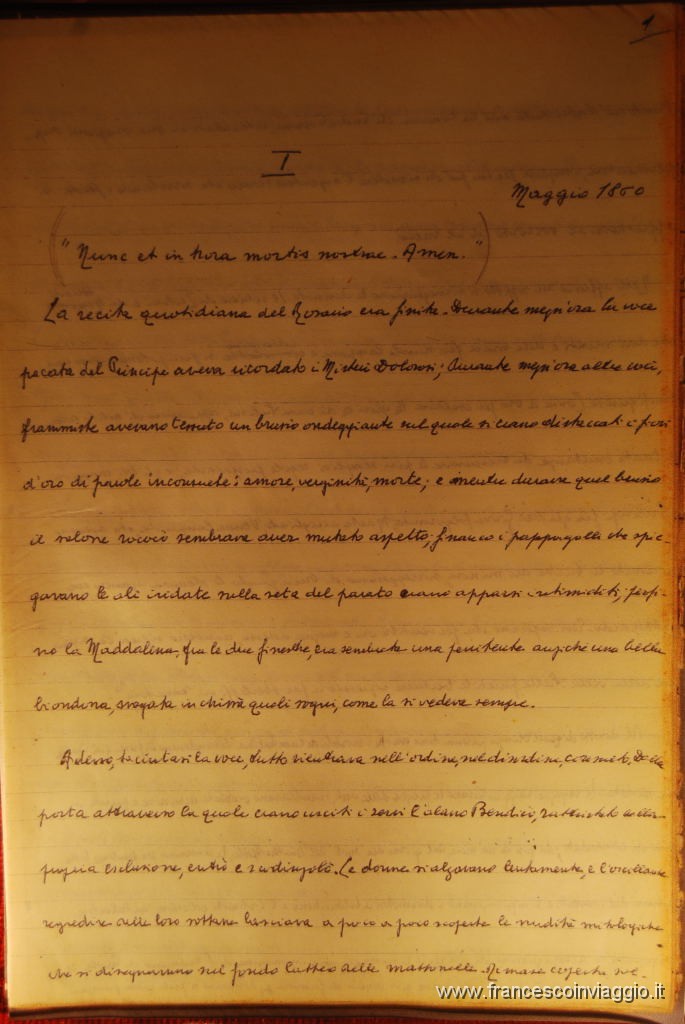 1
I
Maggio 1860
"Nunc et in hora mortis nostrae. Amen."
La recita quotidiana del Rosario era finita. Durante mezz'ora la voce
pacata del Principe aveva ricordato i Misteri Dolorosi; durante mezz'ora altre voci,
frammiste avevano tessuto un brusio ondeggiante sul quale si erano distaccati i fiori
d'oro di parole inconsuete: amore, verginità, morte; e mentre durava quel brusio
il salone rococò sembrava aver mutato aspetto; financo i pappagalli che spie-
gavano le ali iridate sulla seta del parato erano apparsi intimiditi; perfi-
no la Maddalena, fra le due finestre, era sembrata una penitente anziché una bella
biondona, svagata in chissà quali sogni, come la si vedeva sempre.
Adesso, taciutasi la voce, tutto rientrava nell'ordine, nel disordine, consueto. Dalla
porta attraverso la quale erano usciti i servi l'alano Bendicò, rattristato dalla
propria esclusione, entrò e scodinzolò. Le donne si alzavano lentamente, e l'oscillante
regredire delle loro sottane lasciava a poco a poco scoperte le nudità mitologiche
che si disegnavano sul fondo latteo delle mattonelle. Rimase coperta sol-
www.francescoinviaggio.it